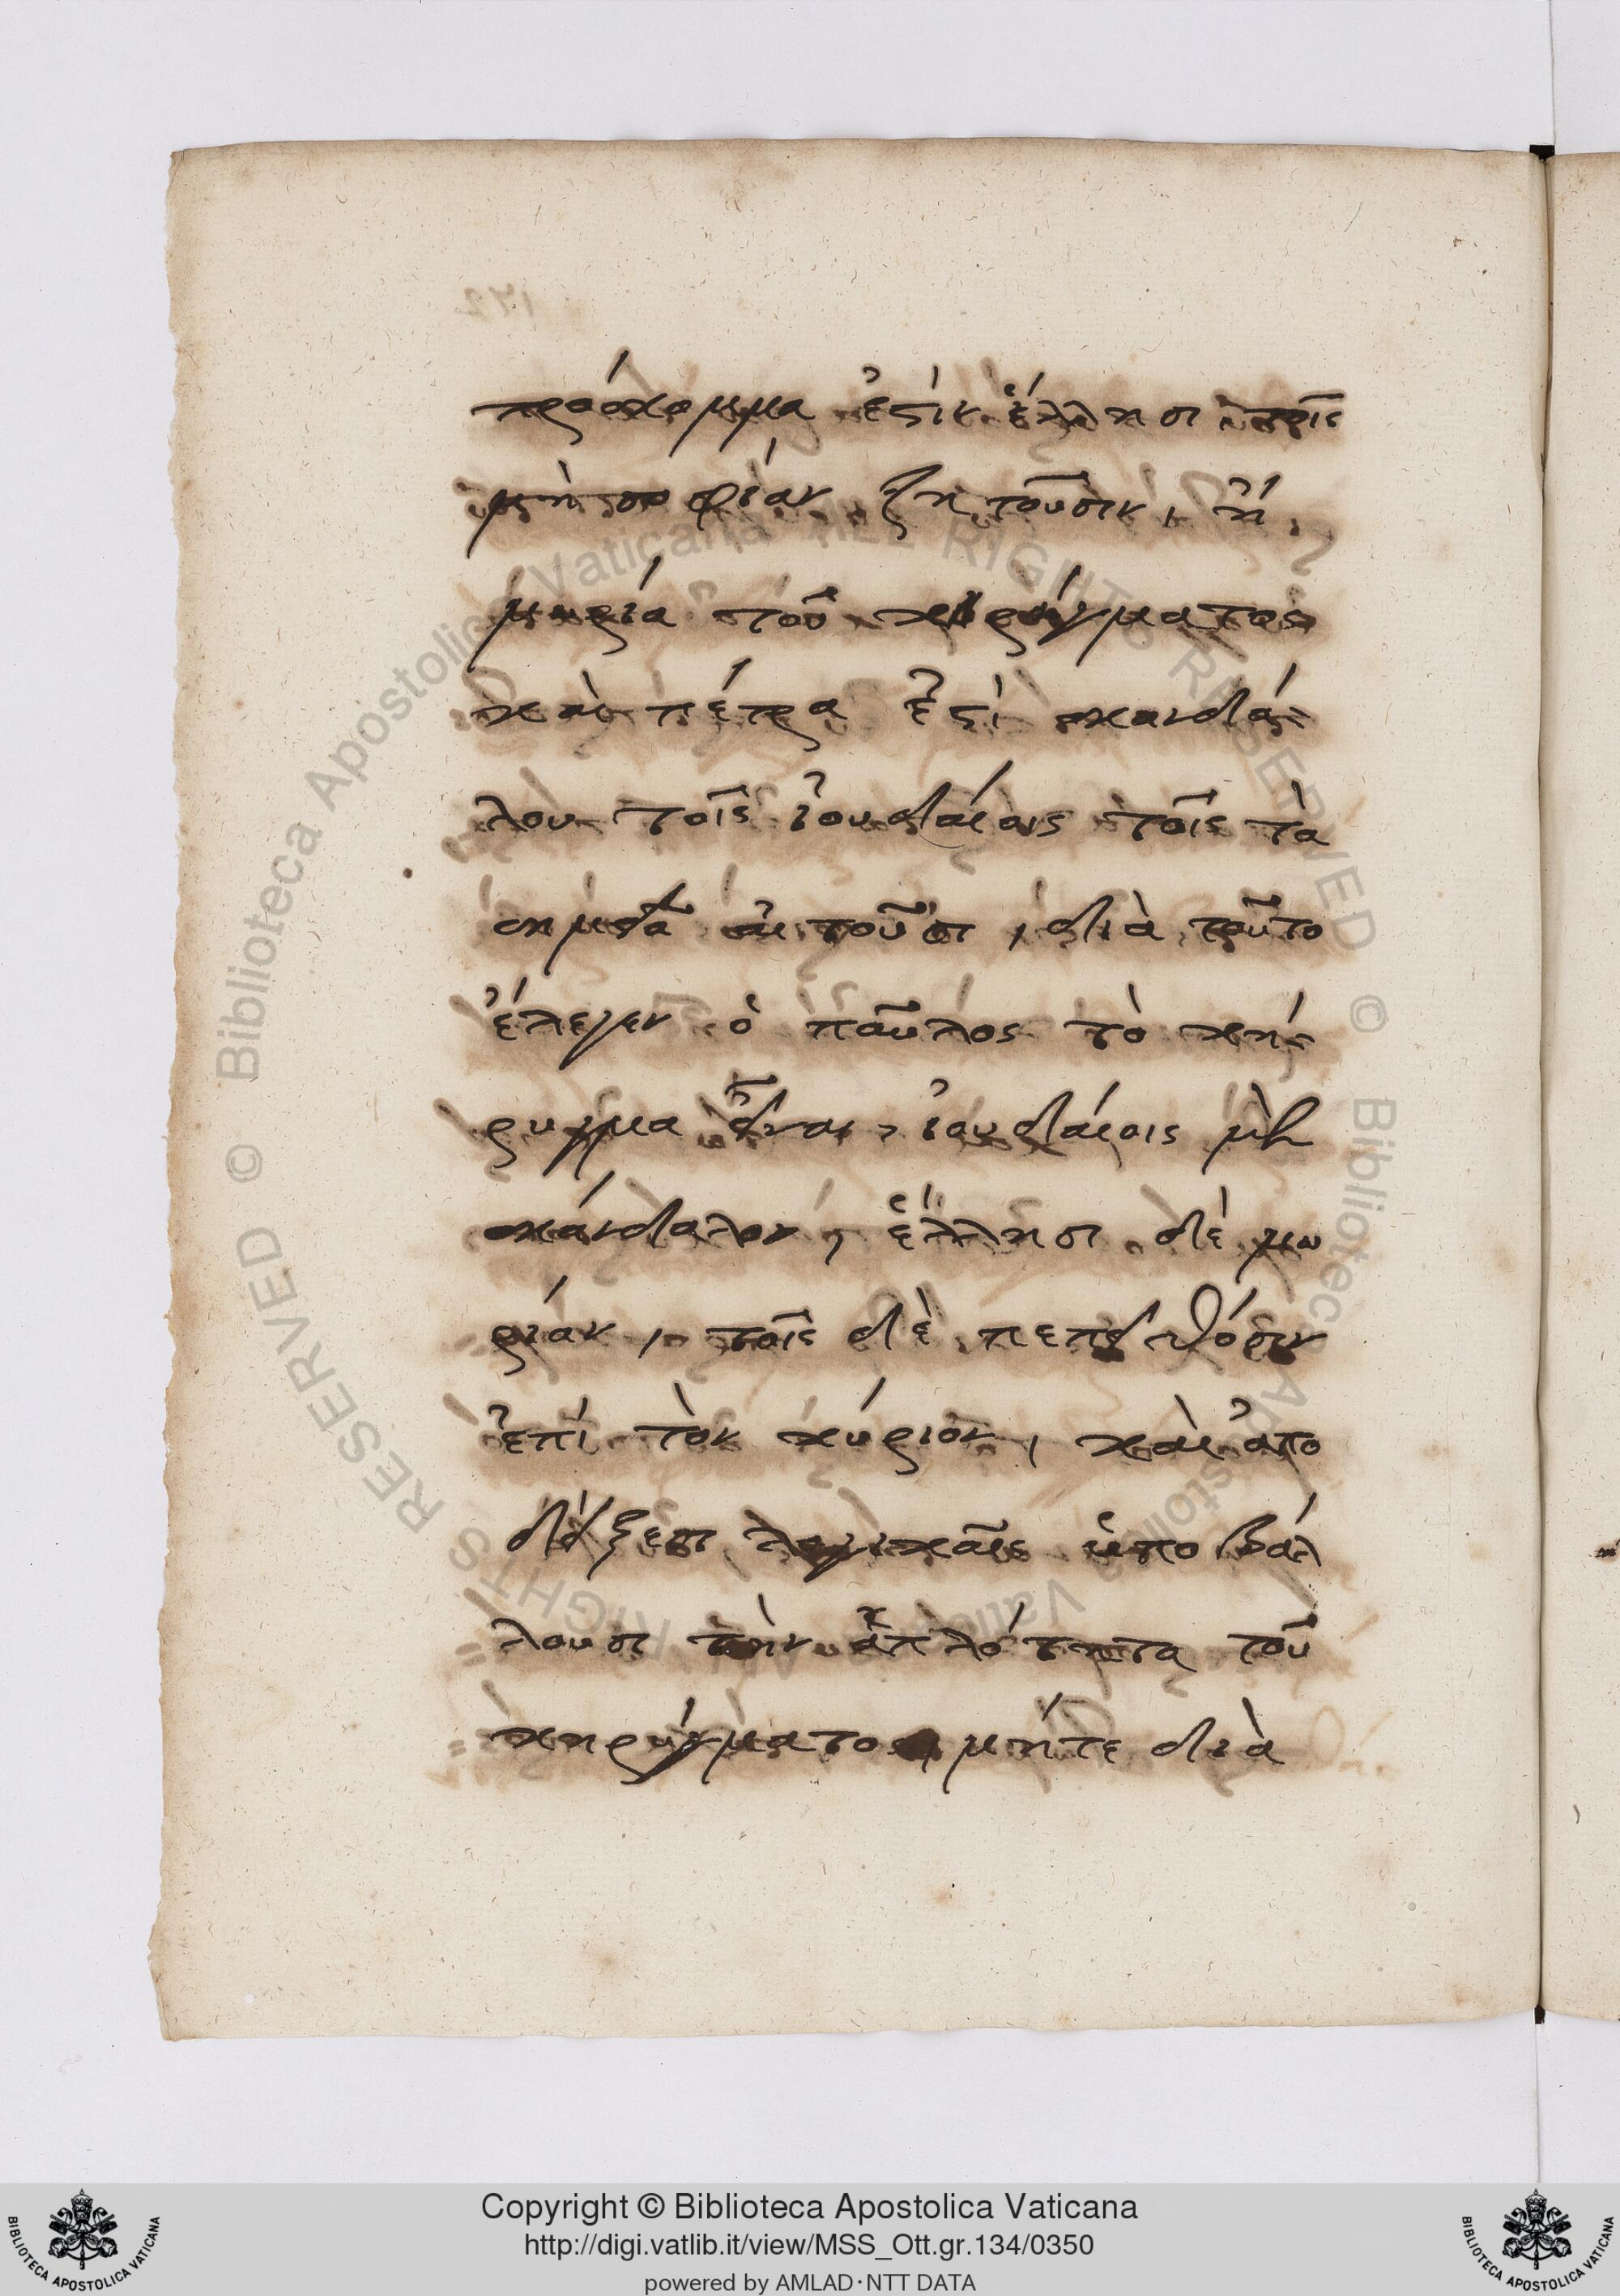 πρόσκομμα ἐστὶν ἕλλησι τοῖς
μὴ σοφίαν ζητοῦσιν, ἢ
μωρία τοῦ κηρύγματος
καὶ πέτρα ἐστὶ σκανδά-
λου τοῖς ἰουδαίοις τοῖς τὰ
σημεῖα αἰτοῦσι, διὰ τοῦτο
ἔλεγεν ὁ παῦλος τὸ κή-
ρυγμα εἶναι, ἰουδαίοις μὲν
σκάνδαλον, ἕλλησι δὲ μω
ρίαν, τοῖς δὲ πεποιθόσιν
ἐπὶ τὸν κύριον, καὶ ἀπο
δείξεσι λογικαῖς ὑποβάλ
λουσι τὴν ἁπλότητα τοῦ
κηρύγματος μήτε διὰ
Copyright © Biblioteca Apostolica Vaticana
http://digi.vatlib.it/view/MSS_Ott.gr.134/0350
powered by AMLAD·NTT DATA
BIBLIOTECA APOSTOLICA VATICANA
BIBLIOTECA APOSTOLICA VATICANA
© Biblioteca Apostolica Vaticana ALL RIGHTS RESERVED © Biblioteca Apostolica Vaticana ALL RIGHTS RESERVED